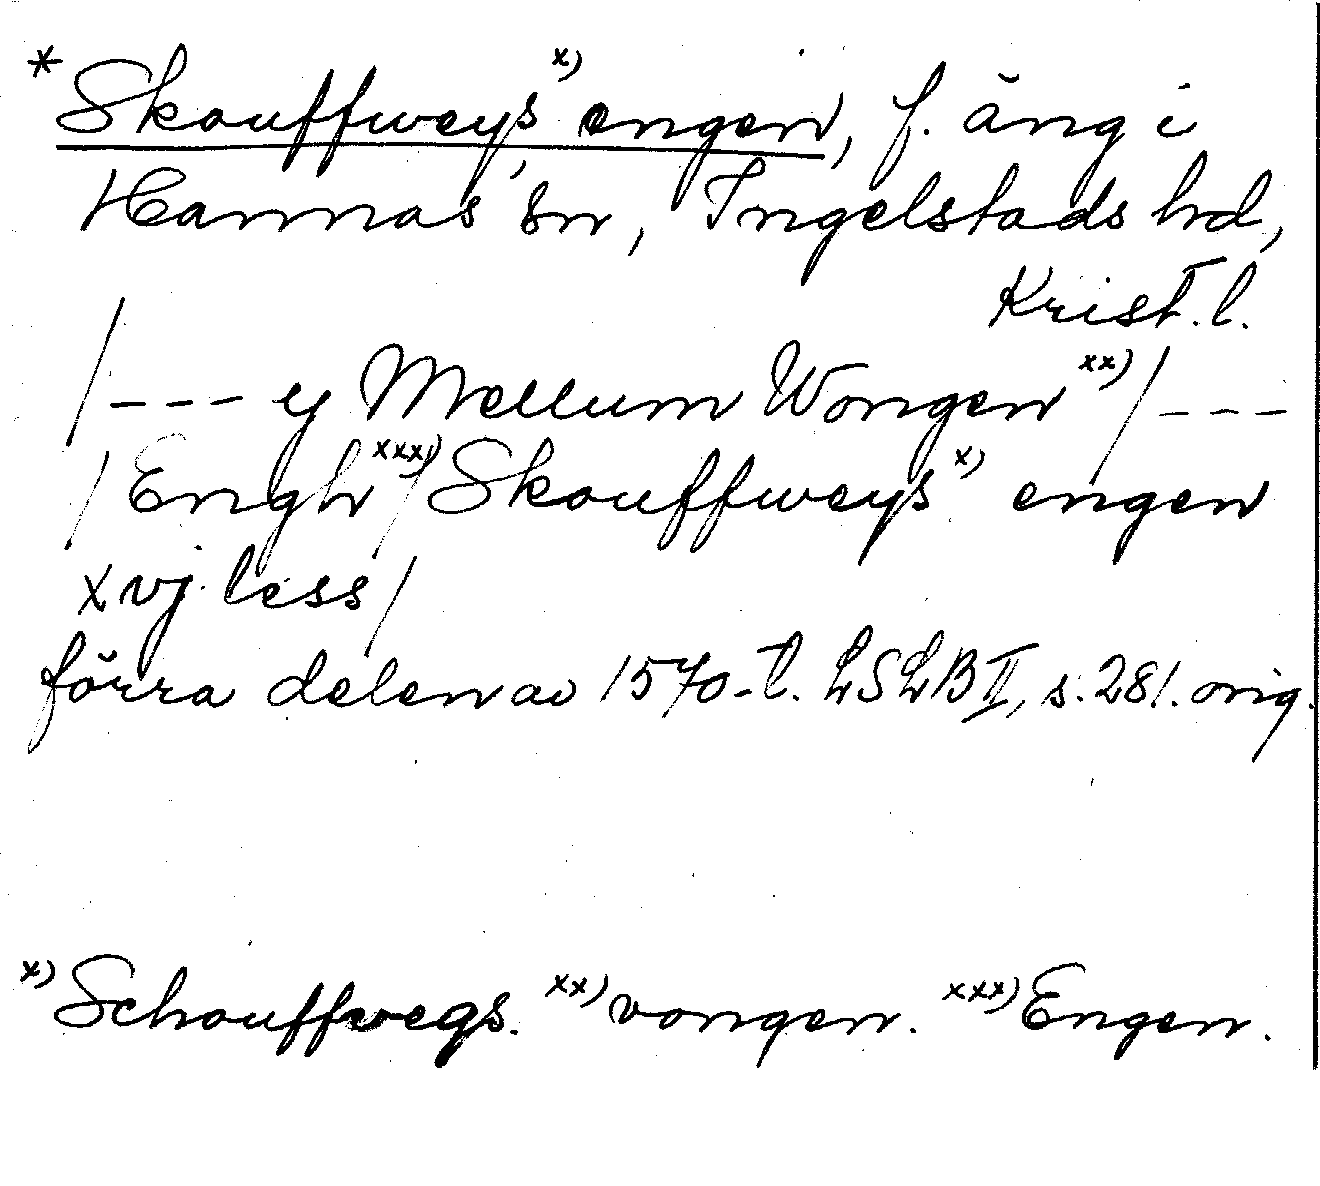 * Skouffweys x) engen, f. äng i
Hannas sn, Ingelstads hd,
Krist. l.
/--- y Mellum Wongen xx) /---
/Engh xxx)/ Skouffweys x) engen
xvj less/
förra delen av 1570-t. LSLB II, s. 281. orig.
x) Schouffvegs. xx) vongen. xxx) Engen.